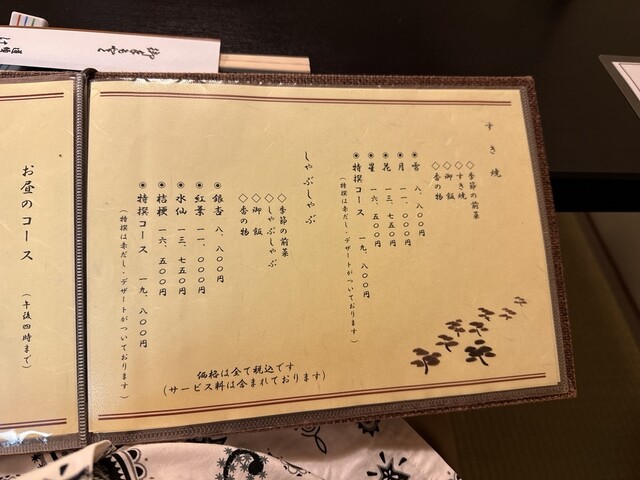 すき焼
◇季節の前菜
◇すき焼
◇御飯
◇香の物
◉雪 八、八〇〇円
◉月 一一、〇〇〇円
◉花 一三、七五〇円
◉星 一六、五〇〇円
◉特撰コース 一九、八〇〇円
(特撰は赤だし・デザートがついております)
しゃぶしゃぶ
◇季節の前菜
◇しゃぶしゃぶ
◇御飯
◇香の物
◉銀杏 八、八〇〇円
◉紅葉 一一、〇〇〇円
◉水仙 一三、七五〇円
◉桔梗 一六、五〇〇円
◉特撰コース 一九、八〇〇円
(特撰は赤だし・デザートがついております)
価格は全て税込です
(サービス料は含まれております)
お昼のコース (午後四時まで)